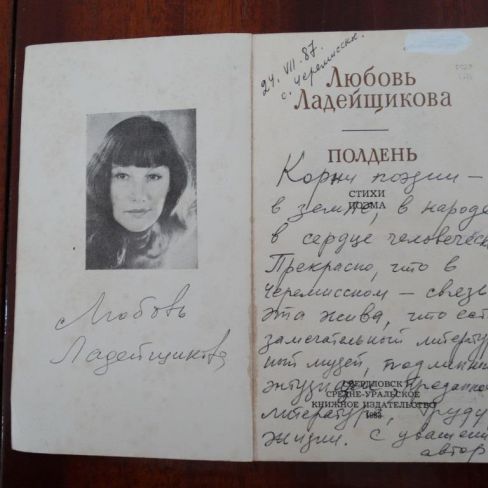 Любовь
Ладейщикова
24. VII. 87.
с. Черемисск.
Любовь
Ладейщикова
ПОЛДЕНЬ
СТИХИ
ПОЭМА
Корни поэзии –
в земле, в народе
в сердце человеческ
Прекрасно, что в
Черемисском – связь
эта жива, что ест
замечательный литерату
ный музей, подлинны
энтузиа преданно
литературе, труду
жизни. С уважени
автор
СВЕРДЛОВСК
СРЕДНЕ-УРАЛЬСКОЕ
КНИЖНОЕ ИЗДАТЕЛЬСТВО